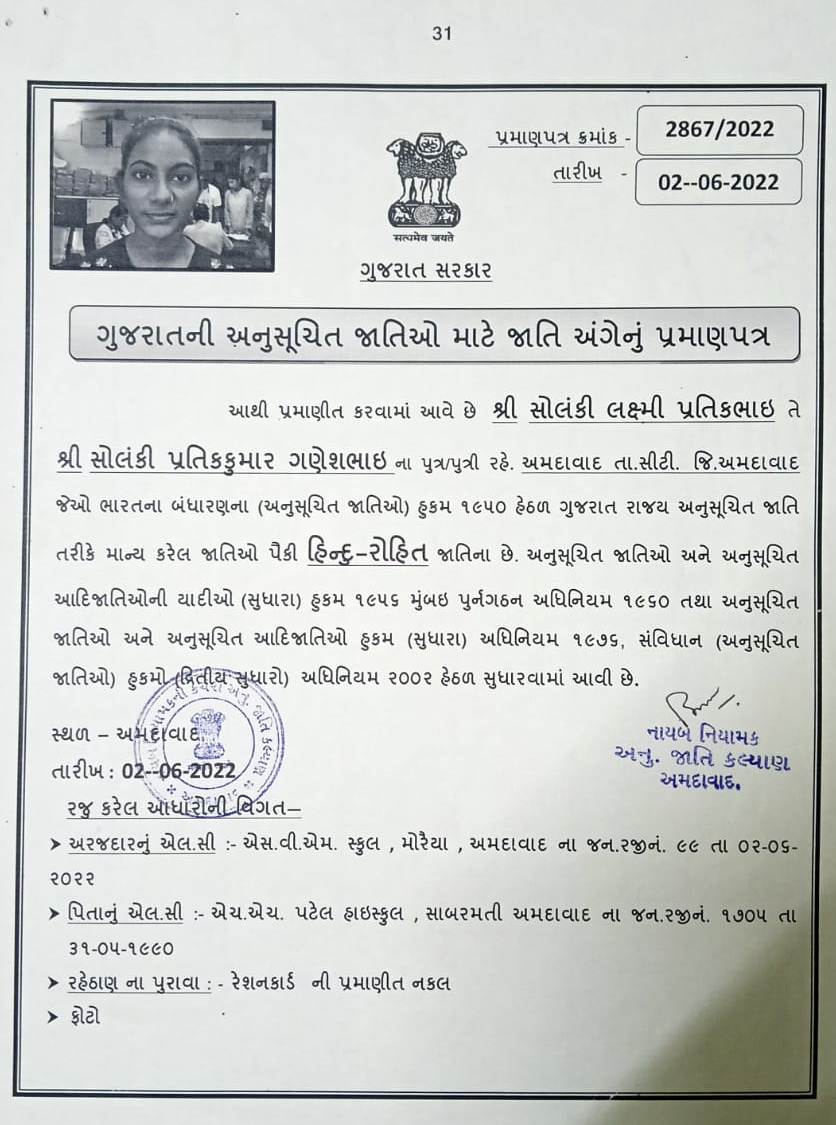 31
પ્રમાણપત્ર ક્રમાંક - 2867/2022
તારીખ - 02--06-2022
सत्यमेव जयते
ગુજરાત સરકાર
ગુજરાતની અનુસૂચિત જાતિઓ માટે જાતિ અંગેનું પ્રમાણપત્ર
આથી પ્રમાણીત કરવામાં આવે છે શ્રી સોલંકી લક્ષ્મી પ્રતિકભાઇ તે
શ્રી સોલંકી પ્રતિકકુમાર ગણેશભાઇ ના પુત્ર/પુત્રી રહે. અમદાવાદ તા.સીટી. જિ.અમદાવાદ
જેઓ ભારતના બંધારણના (અનુસૂચિત જાતિઓ) હુકમ ૧૯૫૦ હેઠળ ગુજરાત રાજય અનુસૂચિત જાતિ
તરીકે માન્ય કરેલ જાતિઓ પૈકી હિન્દુ-રોહિત જાતિના છે. અનુસૂચિત જાતિઓ અને અનુસૂચિત
આદિજાતિઓની યાદીઓ (સુધારા) હુકમ ૧૯૫૬ મુંબઇ પુર્નગઠન અધિનિયમ ૧૯૬૦ તથા અનુસૂચિત
જાતિઓ અને અનુસૂચિત આદિજાતિઓ હુકમ (સુધારા) અધિનિયમ ૧૯૭૬, સંવિધાન (અનુસૂચિત
જાતિઓ) હુકમો (દ્વિતીય સુધારો) અધિનિયમ ૨૦૦૨ હેઠળ સુધારવામાં આવી છે.
સ્થળ – અમદાવાદ
નાયબ નિયામક
અનુ. જાતિ કલ્યાણ
અમદાવાદ.
તારીખ : 02--06-2022
રજુ કરેલ આધારોની વિગત–
➤ અરજદારનું એલ.સી :- એસ.વી.એમ. સ્કુલ , મોરૈયા , અમદાવાદ ના જન.રજીનં. ૯૯ તા ૦૨-૦૬-
૨૦૨૨
➤ પિતાનું એલ.સી :- એચ.એચ. પટેલ હાઇસ્કુલ , સાબરમતી અમદાવાદ ના જન.રજીનં. ૧૭૦૫ તા
૩૧-૦૫-૧૯૯૦
➤ રહેઠાણ ના પુરાવા : - રેશનકાર્ડ ની પ્રમાણીત નકલ
➤ ફોટો